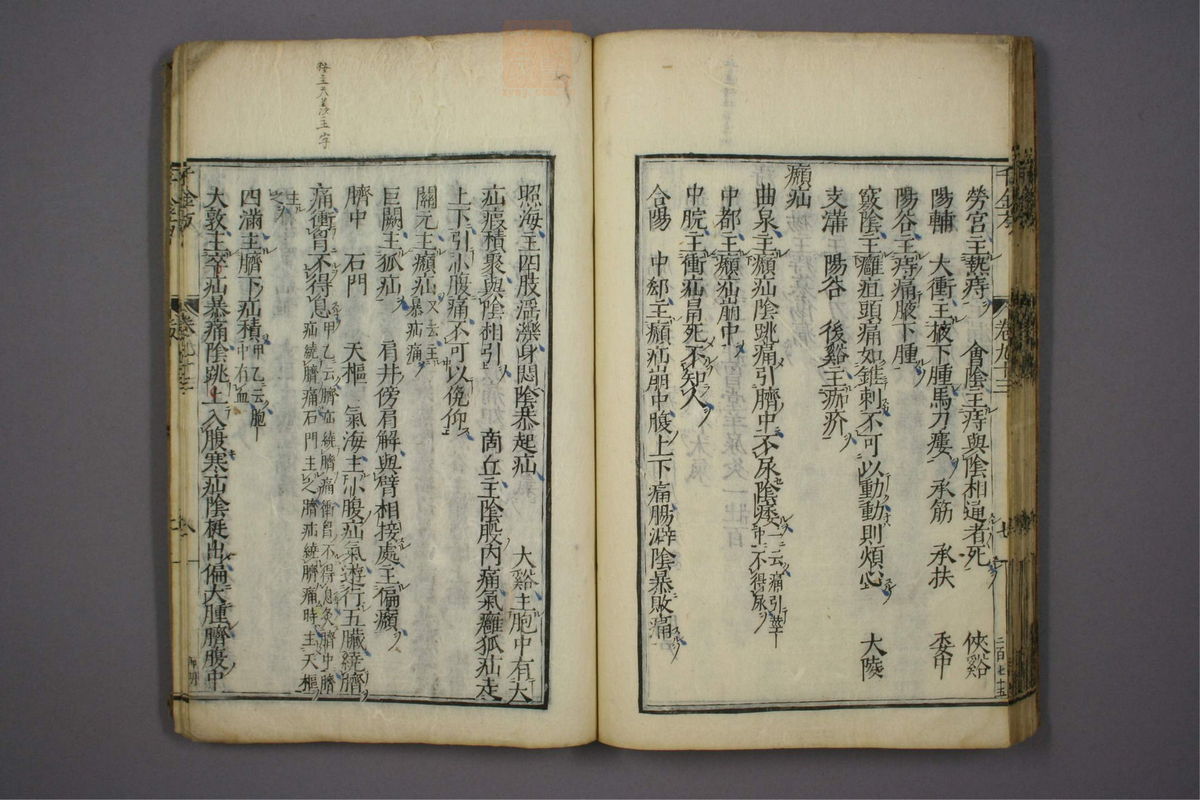 勞宮主熱痔　會陰主痔與陰相通者死　俠谿
陽輔　大衝主掖下腫馬刀瘻　承筋　承扶　委中
陽谷主痔痛腋下腫
竅陰主癰疽頭痛如錐刺不可以動動則煩心　大陵
支溝　陽谷　後谿主痂疥
㿗疝
曲泉主㿗疝陰跳痛引臍中不尿陰痿一云痛引莖中不得尿
中都主㿗疝崩中
中脘主衝疝冒死不知人
合陽　中郄主㿗疝崩中腹上下痛腸澼陰暴敗痛
二百七十五
照海主四肢淫濼身悶陰暴起疝　大谿主胞中有大
疝瘕積聚與陰相引　商丘主陰股內痛氣癰狐疝走
上下引小腹痛不可以俛仰
關元主㿗疝又云主暴疝痛
巨闕主狐疝　肩井傍肩解與臂相接處主偏㿗
臍中　石門　天樞　氣海主小腹疝氣遊行五臟繞臍
痛衝胷不得息甲乙云臍疝繞臍痛衝胷不得息灸臍中臍疝繞臍痛石門主之臍疝繞臍痛時主天樞
主之
四滿主臍下疝積甲乙云胞中有血
大敦主卒疝暴痛陰跳上入腹寒疝陰梃出偏大腫臍腹中
千金方
卷九十三